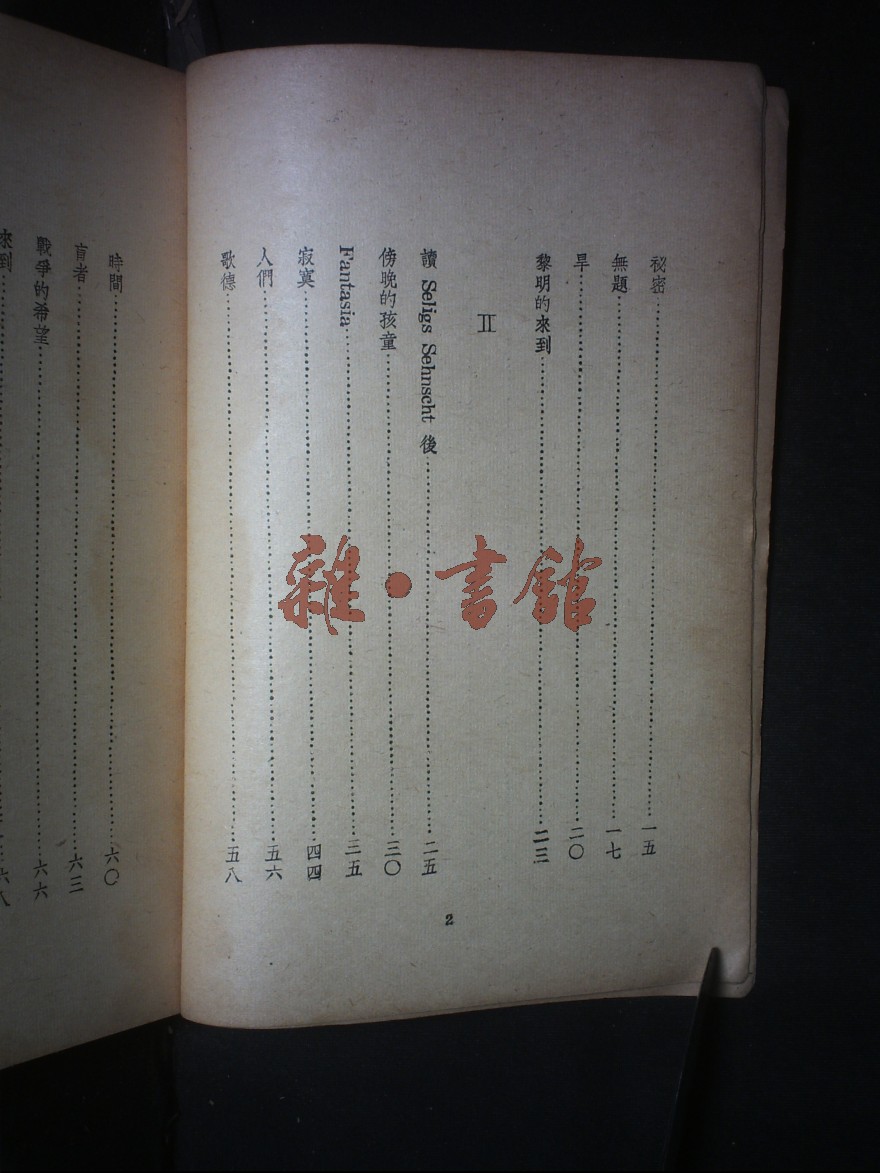 祕密……一五
無題……一七
旱……二〇
黎明的來到……二三
II
讀 Seligs Sehnscht 後……二五
傍晚的孩童……三〇
Fantasia……三五
寂寞……四四
人們……五六
歌德……五八
2
時間……六〇
盲者……六三
戰爭的希望……六六
來到……六八
雜·書館